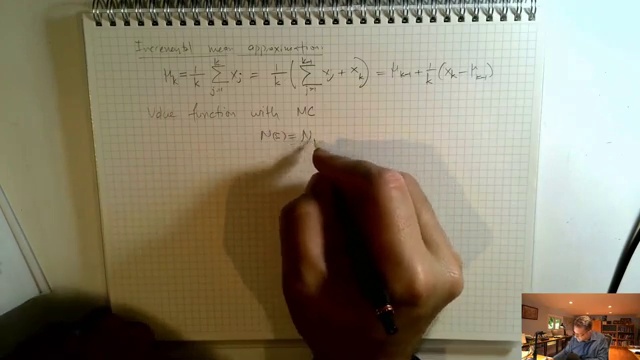 Incremental mean approximation:
μ_k = 1/k ∑_{j=1}^{k} x_j = 1/k ( ∑_{j=1}^{k-1} x_j + x_k ) = μ_{k-1} + 1/k (x_k − μ_{k-1})
Value function with MC
N(s) = N